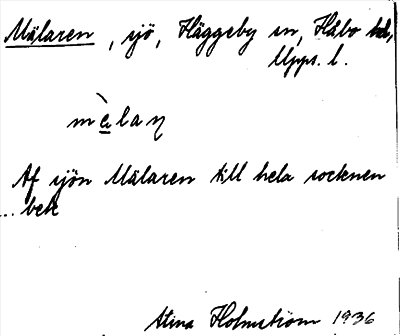 Mälaren, sjö, Häggeby sn, Håbo hd,
Upps. l.
Af sjön Mälaren till hela socknen
Stina Holmström 1936